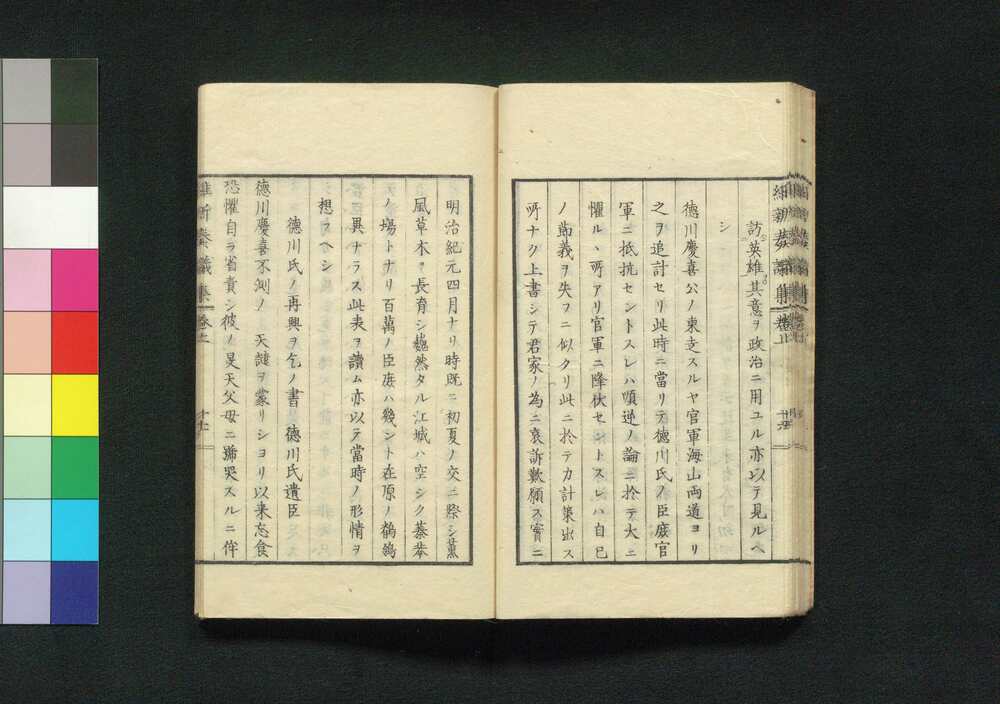 訪英雄其意ヲ政治ニ用ユル亦以テ見ルヘ
シ
德川慶喜公ノ東走スルヤ官軍海山両道ヨリ
之ヲ追討セリ此時ニ當リテ德川氏ノ臣庶官
軍ニ抵抗セントスレハ順逆ノ論ニ於テ大ニ
懼ルヽ所アリ官軍ニ降伏セントスレハ自己
ノ節義ヲ失フニ似タリ此ニ於テカ計策出ス
所ナク上書シテ君家ノ為ニ哀訴歎願ス實ニ
明治紀元四月ナリ時既ニ初夏ノ交ニ際シ薫
風草木ヲ長育シ巍然タル江城ハ空シク蓁莽
ノ場トナリ百萬ノ臣庶ハ幾ント在原ノ鶺鴒
ニ異ナラス此表ヲ讀ム亦以テ當時ノ形情ヲ
想フヘシ
德川氏ノ再興ヲ乞ノ書 德川氏遺臣
德川慶喜不測ノ 天譴ヲ蒙リシヨリ以来忘食
恐懼自ラ省責シ彼ノ旻天父母ニ號哭スルニ侔
維新奏議集 卷之上 十七